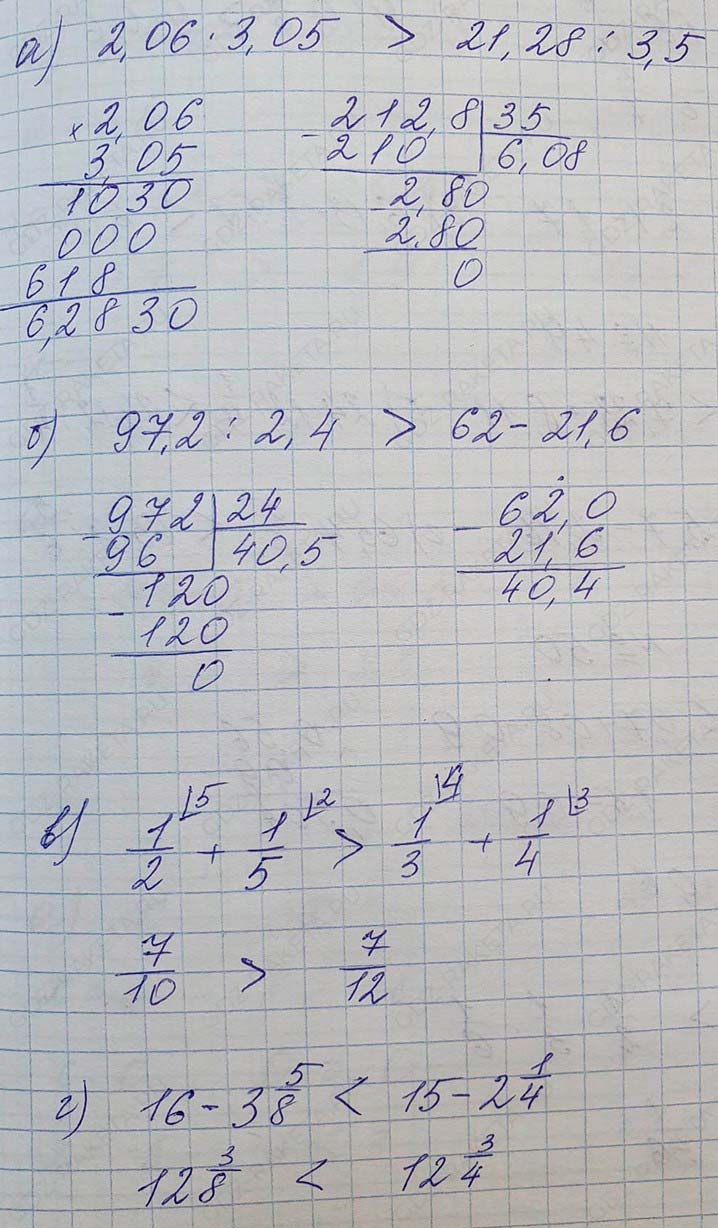 а) 2,06 · 3,05 > 21,28 : 3,5
× 2,06
3,05
1030
000
618
6,2830
- 212,8 | 35
210 | 6,08
- 2,80
2,80
0
б) 97,2 : 2,4 > 62 - 21,6
- 972 | 24
96 | 40,5
- 120
120
0
- 62,0
21,6
40,4
в) 1/2 ⌊5 + 1/5 ⌊2 > 1/3 ⌊4 + 1/4 ⌊3
7/10 > 7/12
г) 16 - 3 5/8 < 15 - 2 1/4
12 3/8 < 12 3/4